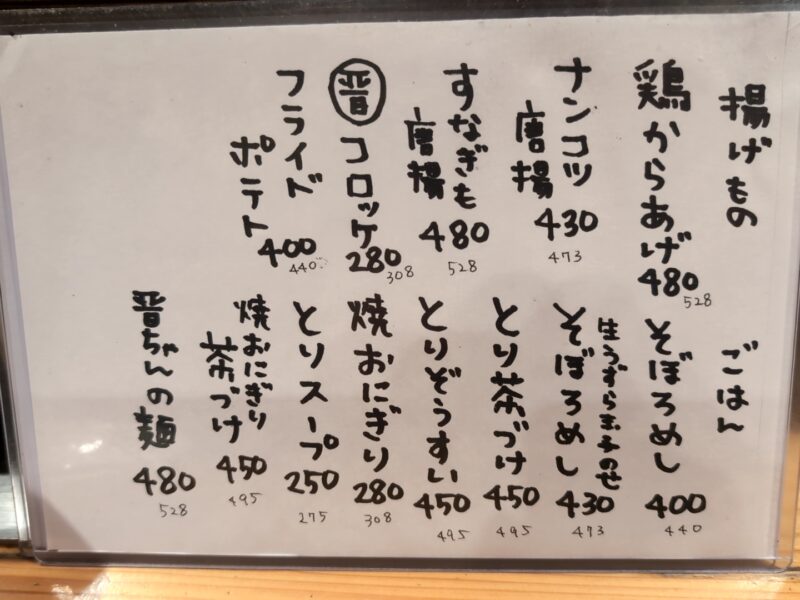 揚げもの
鶏からあげ
480
528
ナンコツ
唐揚
430
473
すなぎも
唐揚
480
528
晋コロッケ
280
308
フライド
ポテト
400
440
ごはん
そぼろめし
400
440
生うずら玉子のせ
そぼろめし
430
473
とり茶づけ
450
495
とりぞうすい
450
495
焼おにぎり
280
308
とりスープ
250
275
焼おにぎり
茶づけ
450
495
晋ちゃんの麺
480
528